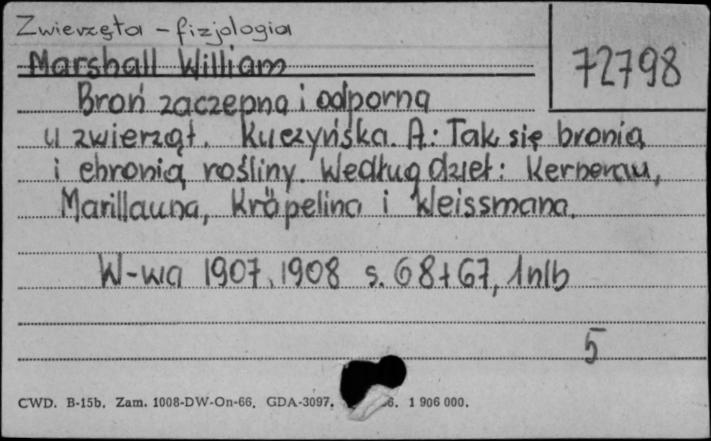 Zwierzęta - fizjologia
72798
Marshall William
Broń zaczepna i odporna
u zwierząt. Kuczyńska. A.: Tak się bronią
i chronią rośliny. Według dzieł: Kernerau,
Marillauna, Kräpelina i Weissmana.
W-wa 1907, 1908 s. 68+67, 1nlb
5
CWD. B-15b. Zam. 1008-DW-On-66. GDA-3097. 6. 1 906 000.